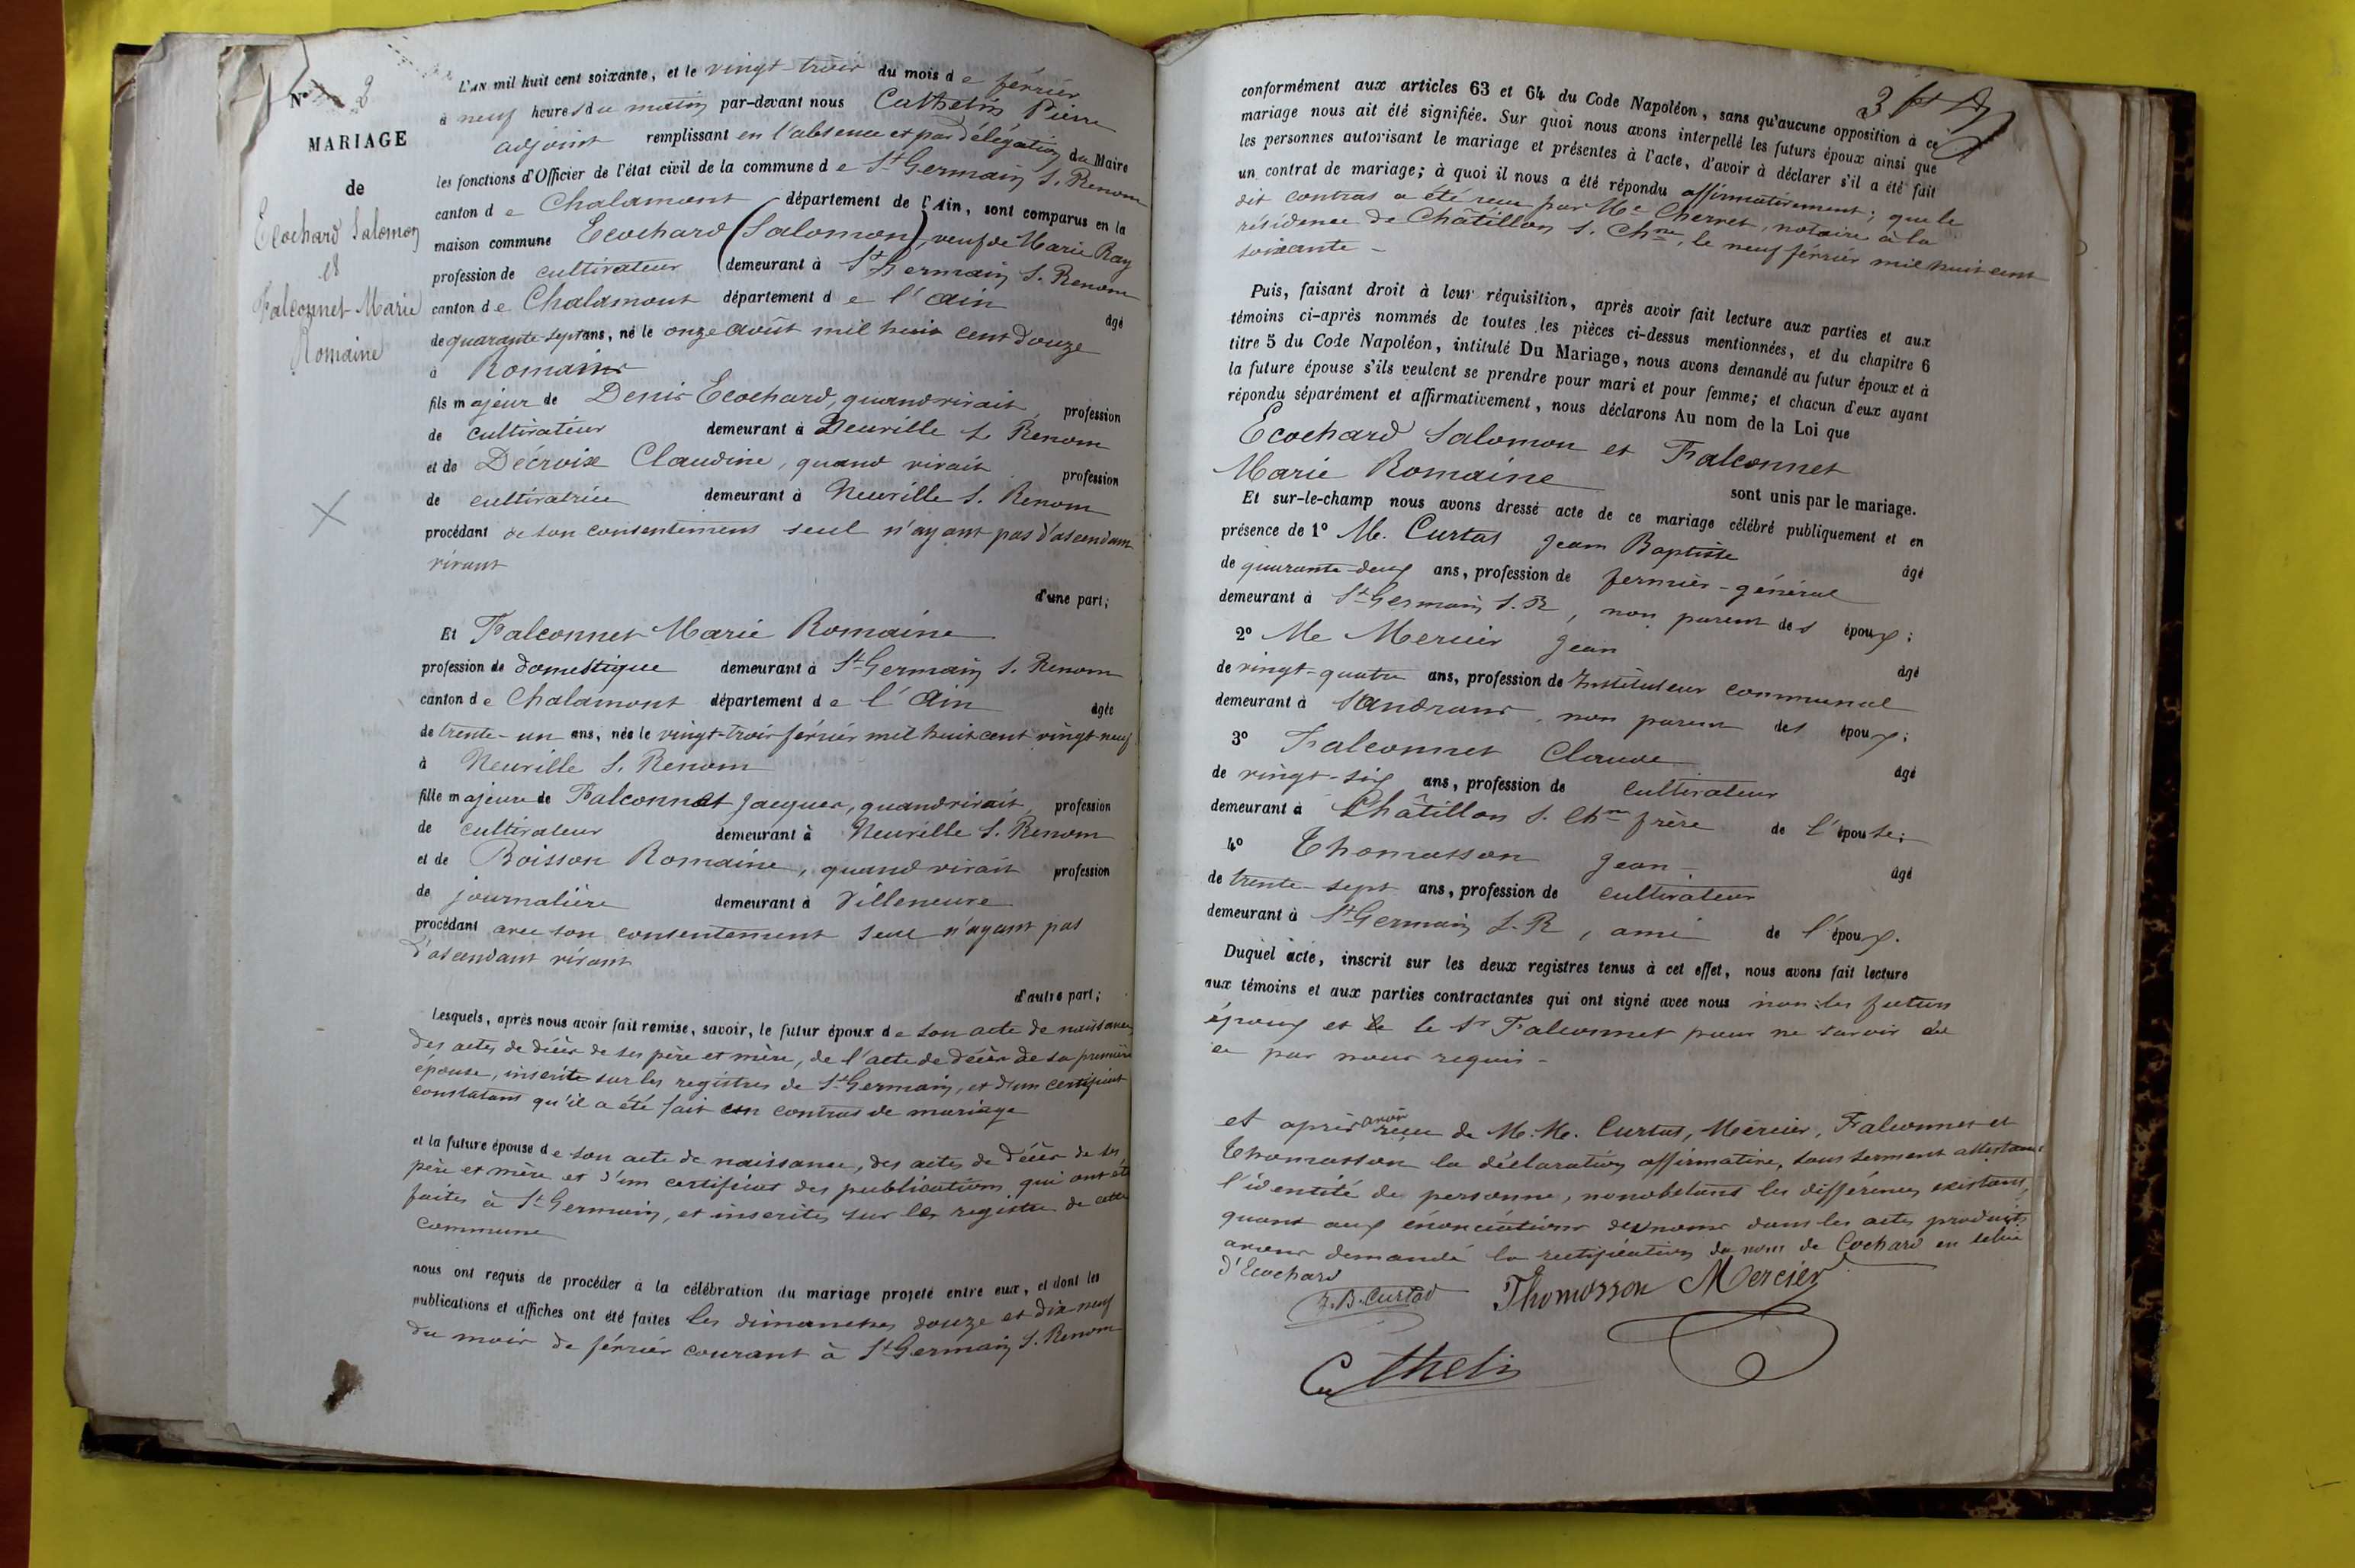 N° 3
MARIAGE
de
Ecochard Salomon
et
Falconnet Marie
Romaine
L'AN mil huit cent soixante, et le vingt-trois du mois de février
à neuf heures du matin par-devant nous Cathelin Pierre
adjoint remplissant en l'absence et par délégation du Maire
les fonctions d'Officier de l'état civil de la commune de St Germain S. Renom
canton de Chalamont département de l'Ain, sont comparus en la
maison commune Ecochard (Salomon), veuf de Marie Ray
profession de cultivateur demeurant à St Germain S. Renom
canton de Chalamont département de l'Ain âgé
de quarante-sept ans, né le onze août mil huit cent douze
à Romans
fils majeur de Denis Ecochard, quand vivait, profession
de cultivateur demeurant à Neuville S. Renom
et de Décroix Claudine, quand vivait profession
de cultivatrice demeurant à Neuville S. Renom
procédant de son consentement seul n'ayant pas d'ascendant
vivant
d'une part;
Et Falconnet Marie Romaine
profession de domestique demeurant à St Germain S. Renom
canton de Chalamont département de l'Ain âgée
de trente-un ans, née le vingt-trois février mil huit cent vingt-neuf
à Neuville S. Renom
fille majeure de Falconnet Jacques, quand vivait, profession
de cultivateur demeurant à Neuville S. Renom
et de Boisson Romaine, quand vivait profession
de journalière demeurant à Villeneuve
procédant avec son consentement seul n'ayant pas
d'ascendant vivant
d'autre part;
Lesquels, après nous avoir fait remise, savoir, le futur époux de son acte de naissance
des actes de décès de ses père et mère, de l'acte de décès de sa première
épouse, inscrite sur les registres de St Germain, et d'un certificat
constatant qu'il a été fait un contrat de mariage
et la future épouse de son acte de naissance, des actes de décès de ses
père et mère et d'un certificat des publications qui ont été
faites à St Germain, et inscrites sur les registre de cette
commune
nous ont requis de procéder à la célébration du mariage projeté entre eux, et dont les
publications et affiches ont été faites les dimanches douze et dix-neuf
du mois de février courant à St Germain S. Renom
3
conformément aux articles 63 et 64 du Code Napoléon, sans qu'aucune opposition à ce
mariage nous ait été signifiée. Sur quoi nous avons interpellé les futurs époux ainsi que
les personnes autorisant le mariage et présentes à l'acte, d'avoir à déclarer s'il a été fait
un contrat de mariage; à quoi il nous a été répondu affirmativement; que le
dit contrat a été reçu par Me Chervet, notaire à la
résidence de Châtillon S. Chne, le neuf février mil huit cent
soixante -
Puis, faisant droit à leur réquisition, après avoir fait lecture aux parties et aux
témoins ci-après nommés de toutes les pièces ci-dessus mentionnées, et du chapitre 6
titre 5 du Code Napoléon, intitulé Du Mariage, nous avons demandé au futur époux et à
la future épouse s'ils veulent se prendre pour mari et pour femme; et chacun d'eux ayant
répondu séparément et affirmativement, nous déclarons Au nom de la Loi que
Ecochard Salomon et Falconnet
Marie Romaine sont unis par le mariage.
Et sur-le-champ nous avons dressé acte de ce mariage célébré publiquement et en
présence de 1° Me. Curtat Jean Baptiste âgé
de quarante-deux ans, profession de fermier-général
demeurant à St Germain S. R, non parent des époux;
2° Me Mercier Jean âgé
de vingt-quatre ans, profession de Instituteur communal
demeurant à Sandrans, non parent des époux;
3° Falconnet Claude âgé
de vingt-six ans, profession de cultivateur
demeurant à Châtillon S. Chne frère de l'épouse;
4° Thomasson Jean - âgé
de trente-sept ans, profession de cultivateur
demeurant à St Germain S. R, ami de l'époux.
Duquel acte, inscrit sur les deux registres tenus à cet effet, nous avons fait lecture
aux témoins et aux parties contractantes qui ont signé avec nous non les futurs
époux et le Sr Falconnet pour ne savoir
ce par nous requis -
et après avoir reçu de M.M. Curtat, Mercier, Falconnet et
Thomasson la déclaration affirmative, sous serment attestant
l'identité de personne, nonobstant les différences existant,
quant aux énonciations des noms dans les actes produits
avons demandé la rectification du nom de Cochard en celui
d'Ecochard
J. B. Curtat Thomasson Mercier
Cathelin